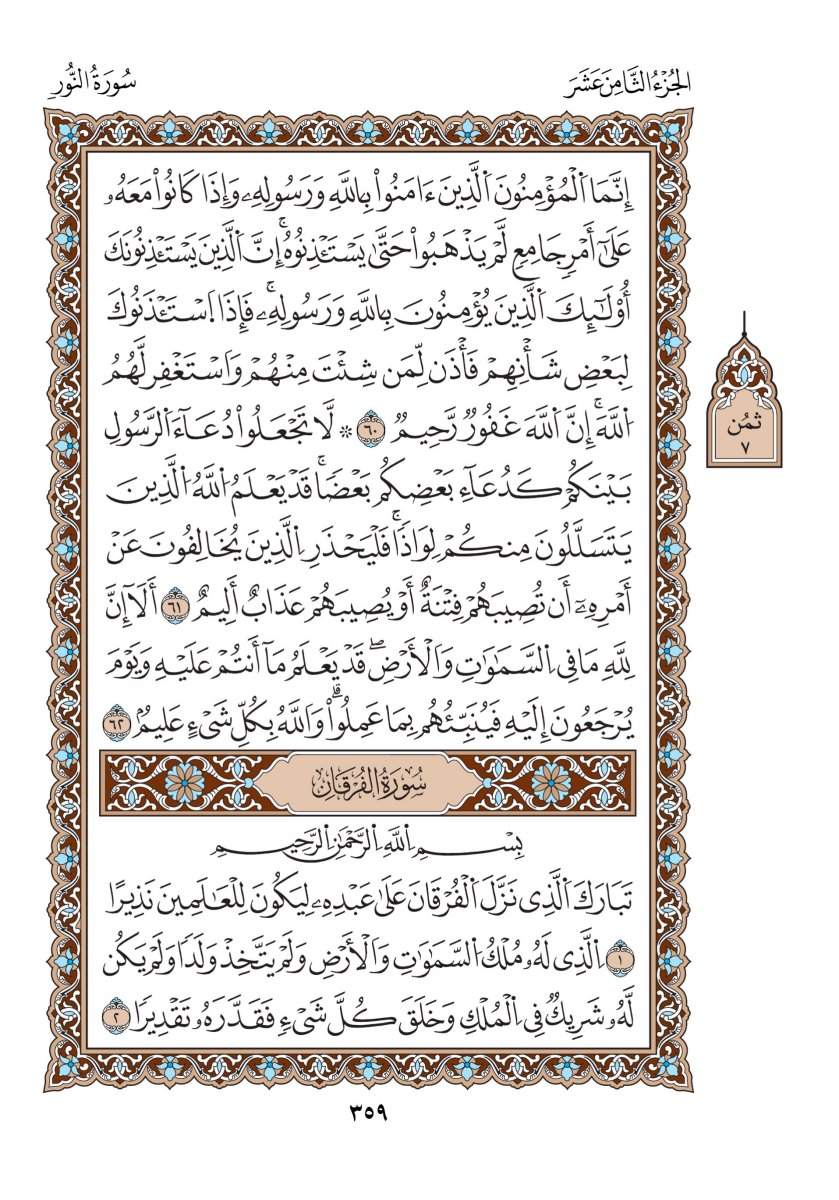 الجُزْءُ الثَّامِنَ عَشَرَ
سُورَةُ النُّورِ
إِنَّمَا اَ۬لْمُؤْمِنُونَ اَ۬لَّذِينَ ءَامَنُواْ بِاللَّهِ وَرَسُولِهِۦ وَإِذَا كَانُواْ مَعَهُۥ
عَلَىٰٓ أَمْرٍ جَامِعٍ لَّمْ يَذْهَبُواْ حَتَّىٰ يَسْتَـْٔذِنُوهُۚ إِنَّ اَ۬لَّذِينَ يَسْتَـْٔذِنُونَكَ
أُوْلَٰٓئِكَ اَ۬لَّذِينَ يُؤْمِنُونَ بِاللَّهِ وَرَسُولِهِۦۚ فَإِذَا اَ۪سْتَـْٔذَنُوكَ
لِبَعْضِ شَأْنِهِمْ فَأْذَن لِّمَن شِئْتَ مِنْهُمْ وَاَسْتَغْفِر لَّهُمُ
اُ۬للَّهَۚ إِنَّ اَ۬للَّهَ غَفُورٌ رَّحِيمٌ ٦٠ ۞ لَّا تَجْعَلُواْ دُعَآءَ اَ۬لرَّسُولِ
بَيْنَكُمْ كَدُعَآءِ بَعْضِكُم بَعْضًاۚ قَدْ يَعْلَمُ اُ۬للَّهُ اُ۬لَّذِينَ
يَتَسَلَّلُونَ مِنكُمْ لِوَاذًاۚ فَلْيَحْذَرِ اِ۬لَّذِينَ يُخَالِفُونَ عَنْ
أَمْرِهِۦٓ أَن تُصِيبَهُمْ فِتْنَةٌ أَوْ يُصِيبَهُمْ عَذَابٌ أَلِيمٌ ٦١ أَلَآ إِنَّ
لِلَّهِ مَا فِي اِ۬لسَّمَٰوَٰتِ وَالْأَرْضِۖ قَدْ يَعْلَمُ مَآ أَنتُمْ عَلَيْهِ وَيَوْمَ
يُرْجَعُونَ إِلَيْهِ فَيُنَبِّئُهُم بِمَا عَمِلُواْۗ وَاللَّهُ بِكُلِّ شَيْءٍ عَلِيمٌ ٦٢
سُورَةُ الْفُرْقَانِ
بِسْمِ اِ۬للَّهِ اِ۬لرَّحْمَٰنِ اِ۬لرَّحِيمِ
تَبَارَكَ اَ۬لَّذِي نَزَّلَ اَ۬لْفُرْقَانَ عَلَىٰ عَبْدِهِۦ لِيَكُونَ لِلْعَٰلَمِينَ نَذِيرًا
١ اِ۬لَّذِي لَهُۥ مُلْكُ اُ۬لسَّمَٰوَٰتِ وَالْأَرْضِ وَلَمْ يَتَّخِذْ وَلَدًا وَلَمْ يَكُن
لَّهُۥ شَرِيكٌ فِي اِ۬لْمُلْكِ وَخَلَقَ كُلَّ شَيْءٍ فَقَدَّرَهُۥ تَقْدِيرًا ٢
ثُمُن
٧
٣٥٩